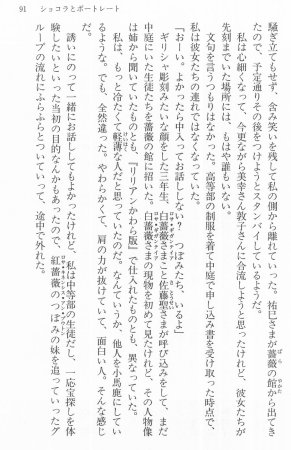 91　ショコラとポートレート
騒ぎ立てもせず、含み笑いを残して私の側から離れていった。祐巳さまが薔薇の館から出てき
たので、予定通りその後をつけようとスタンバイしているようだ。
私は心細くなって、今更ながら美幸さん敦子さんに合流しようと思ったけれど、彼女たちが
先刻までいた場所には、もはや誰もいない。
文句を言うつもりはなかった。高等部の制服を着て中庭で申し込み書を受け取った時点で、
私は彼女たちの連れではなくなっていた。
「おーい。よかったら中入ってお話ししない？　つぼみたち、いるよ」
ギリシャ彫刻みたいな顔をした三年生、白薔薇さまこと佐藤聖さまが呼び込みをして、まだ
中庭にいた生徒たちを薔薇の館に招いた。白薔薇さまの現物を初めて見たけれど、その人物像
は姉から聞いていたものとも、『リリアンかわら版』で仕入れたものとも、異なっていた。
私は、もっと冷たくて軽薄な人だと思っていたのだ。なんていうか、他人を小馬鹿にしてい
るような。でも、全然違った。やわらかくて、肩の力が抜けていて、面白い人。そんな感じ
だ。
誘いにのって一緒にお話ししてもよかったけれど、私は中等部の生徒だし、一応宝探しを体
験したいといった当初の目的なんかもあったので、紅薔薇のつぼみの妹を追っていったグ
ループの流れにふらふらとついていって、途中で外れた。